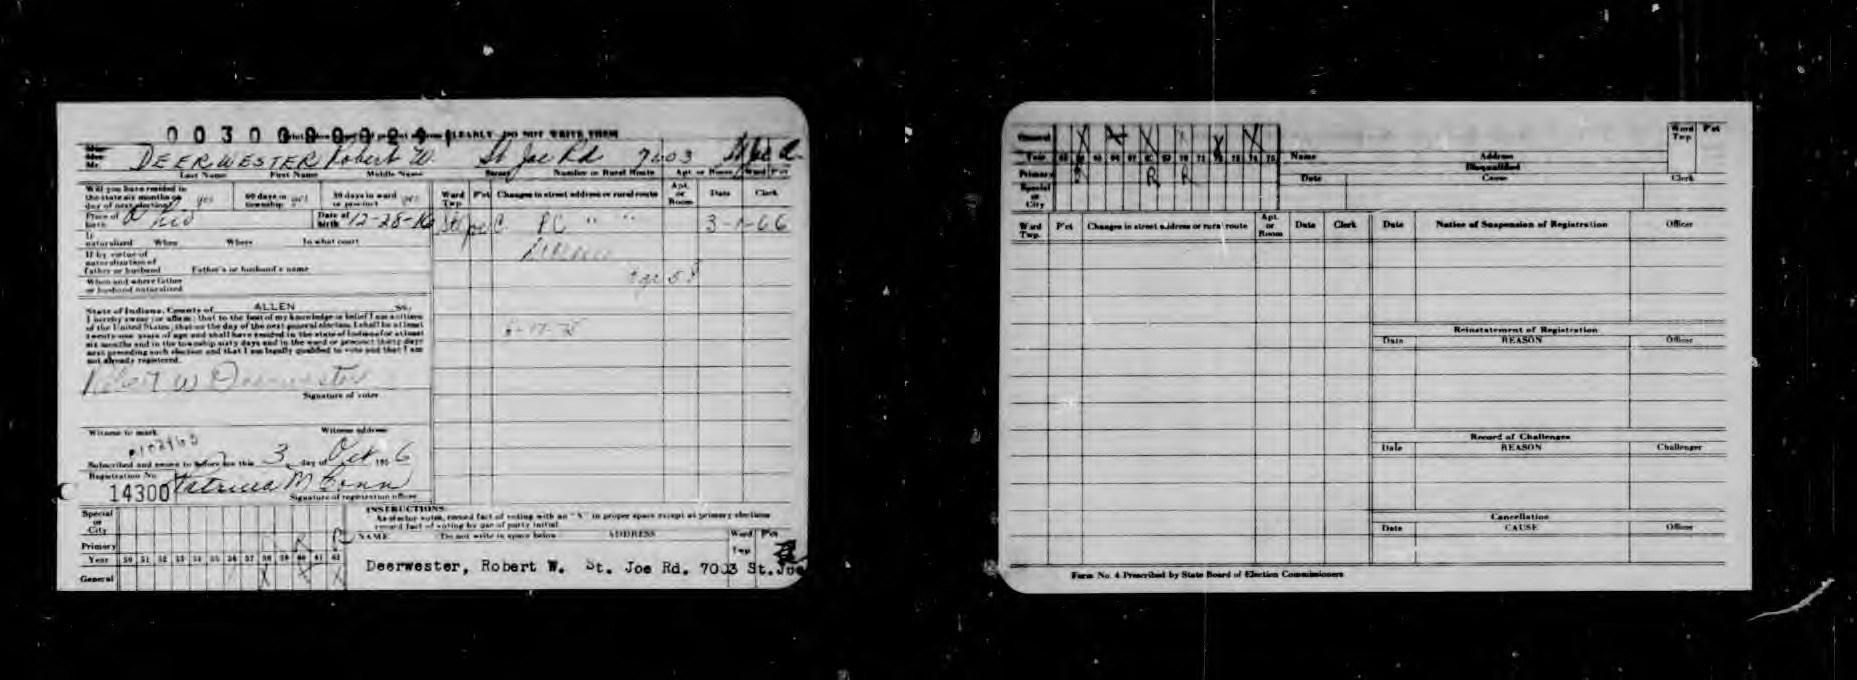 CLEARLY DO NOT WRITE THEM
DEERWESTER Robert W. St Joe Rd 7003
Last Name First Name Middle Name Street Number or Rural Route Apt or Room Ward P'ct
Will you have resided in the state six months on day of next election? yes 60 days in township yes 30 days in ward or precinct yes
Ward Twp. P'ct Changes in street address or rural route Apt. or Room Date Clerk
Place of birth Ohio Date of birth 12-28-16
St Joe C PC " " 3-1-66
If naturalized When Where In what court
If by virtue of naturalization of father or husband Father's or husband's name
When and where father or husband naturalized
State of Indiana, County of ALLEN ss.
I hereby swear (or affirm) that to the best of my knowledge or belief I am a citizen
of the United States; that on the day of the next general election, I shall be at least
twenty-one years of age and shall have resided in the state of Indiana for at least
six months and in the township sixty days and in the ward or precinct thirty days
next preceding such election and that I am legally qualified to vote and that I am
not already registered.
Robert W Deerwester
Signature of voter
Witness to mark Witness address
Subscribed and sworn to before me this 3 day of Oct 1956
Registration No. 14300 Patricia M
Signature of registration officer
Special or City
Primary R
Year 50 51 52 53 54 55 56 57 58 59 60 61 62
General X X X
INSTRUCTIONS
As elector votes, record fact of voting with an "X" in proper space except at primary elections
record fact of voting by use of party initial.
NAME Do not write in space below ADDRESS Ward Twp. P'ct
Deerwester, Robert W. St. Joe Rd. 7003 St. Joe
General X X X X X X
Year 63 64 65 66 67 68 69 70 71 72 73 74 75
Primary R R
Special or City
Name Address Ward Twp. P'ct
Disqualified
Date Cause Clerk
Ward Twp. P'ct Changes in street address or rural route Apt. or Room Date Clerk
Date Notice of Suspension of Registration Officer
Reinstatement of Registration
Date REASON Officer
Record of Challenges
Date REASON Challenger
Cancellation
Date CAUSE Officer
Form No. 4 Prescribed by State Board of Election Commissioners